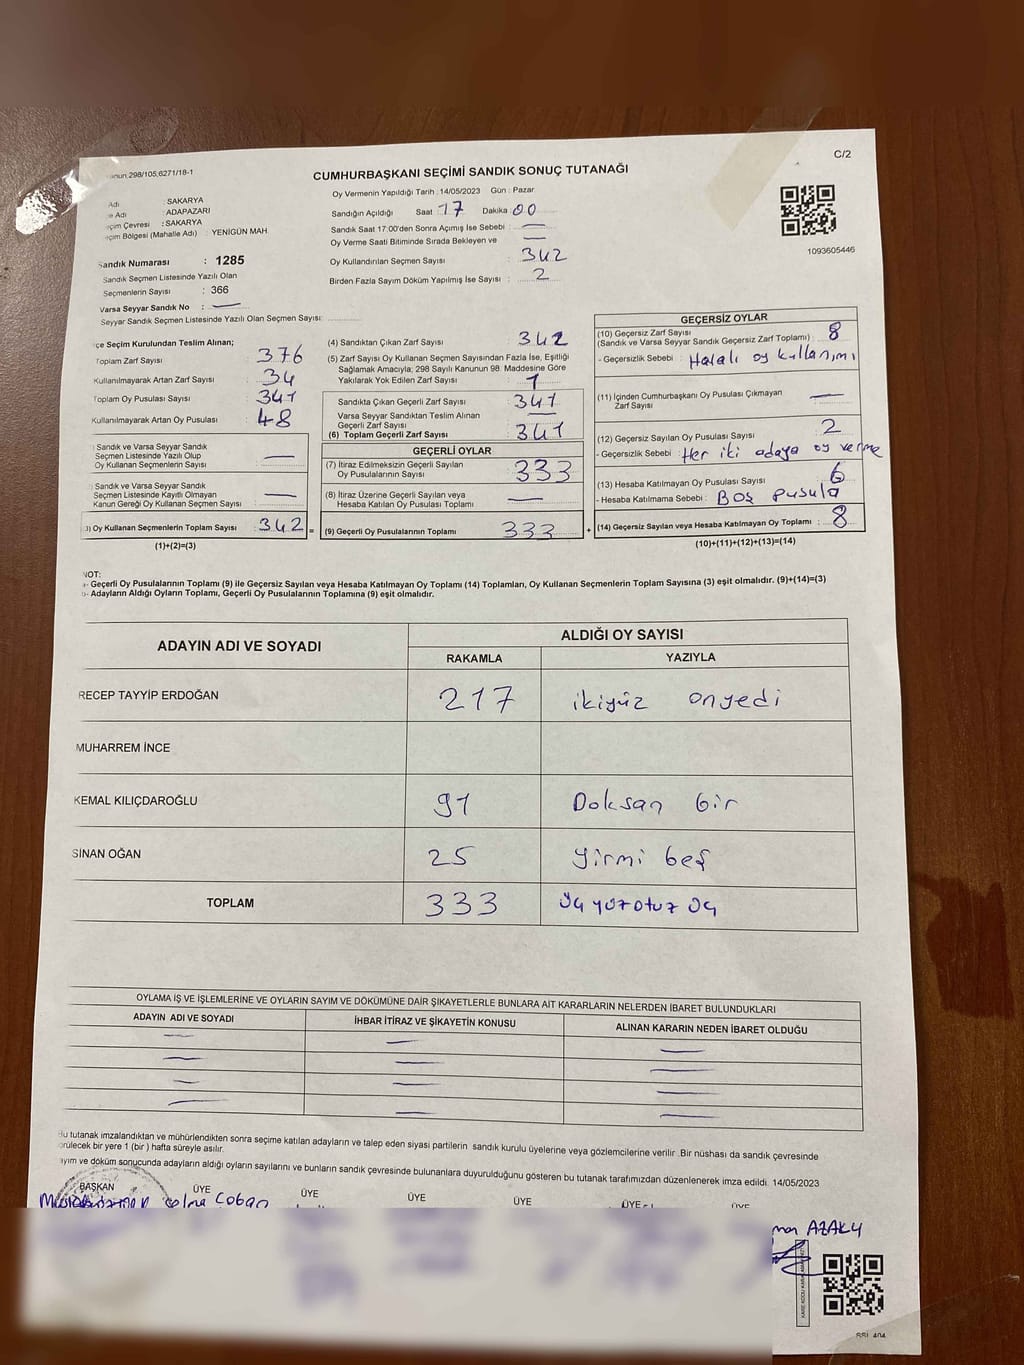 298/105,6271/18-1
C/2
CUMHURBAŞKANI SEÇİMİ SANDIK SONUÇ TUTANAĞI
: SAKARYA
: ADAPAZARI
: SAKARYA
(Mahalle Adı) : YENİGÜN MAH.
Sandık Numarası : 1285
Sandık Seçmen Listesinde Yazılı Olan
Seçmenlerin Sayısı : 366
Varsa Seyyar Sandık No : —
Seyyar Sandık Seçmen Listesinde Yazılı Olan Seçmen Sayısı:
Oy Vermenin Yapıldığı Tarih : 14/05/2023 Gün : Pazar
Sandığın Açıldığı Saat 17 Dakika 00
Sandık Saat 17:00'den Sonra Açımış İse Sebebi : —
Oy Verme Saati Bitiminde Sırada Bekleyen ve —
Oy Kullandırılan Seçmen Sayısı : 342
Birden Fazla Sayım Döküm Yapılmış İse Sayısı : 2
1093605446
Seçim Kurulundan Teslim Alınan;
Toplam Zarf Sayısı 376
Kullanılmayarak Artan Zarf Sayısı 34
Toplam Oy Pusulası Sayısı
Kullanılmayarak Artan Oy Pusulası 48
Sandık ve Varsa Seyyar Sandık
Seçmen Listesinde Yazılı Olup
Oy Kullanan Seçmenlerin Sayısı —
Sandık ve Varsa Seyyar Sandık
Seçmen Listesinde Kayıtlı Olmayan
Kanun Gereği Oy Kullanan Seçmen Sayısı —
3) Oy Kullanan Seçmenlerin Toplam Sayısı 342 =
(1)+(2)=(3)
(4) Sandıktan Çıkan Zarf Sayısı : 342
(5) Zarf Sayısı Oy Kullanan Seçmen Sayısından Fazla İse, Eşitliği
Sağlamak Amacıyla; 298 Sayılı Kanunun 98. Maddesine Göre
Yakılarak Yok Edilen Zarf Sayısı : 1
Sandıkta Çıkan Geçerli Zarf Sayısı : 341
Varsa Seyyar Sandıktan Teslim Alınan
Geçerli Zarf Sayısı : —
(6) Toplam Geçerli Zarf Sayısı : 341
GEÇERLİ OYLAR
(7) İtiraz Edilmeksizin Geçerli Sayılan
Oy Pusulalarının Sayısı : 333
(8) İtiraz Üzerine Geçerli Sayılan veya
Hesaba Katılan Oy Pusulası Toplamı : —
(9) Geçerli Oy Pusulalarının Toplamı 333 +
GEÇERSİZ OYLAR
(10) Geçersiz Zarf Sayısı
(Sandık ve Varsa Seyyar Sandık Geçersiz Zarf Toplamı) : 8
- Geçersizlik Sebebi : Hatalı oy kullanımı
(11) İçinden Cumhurbaşkanı Oy Pusulası Çıkmayan
Zarf Sayısı : —
(12) Geçersiz Sayılan Oy Pusulası Sayısı : 2
- Geçersizlik Sebebi : Her iki adaya oy verme
(13) Hesaba Katılmayan Oy Pusulası Sayısı : 6
- Hesaba Katılmama Sebebi : Boş pusula
(14) Geçersiz Sayılan veya Hesaba Katılmayan Oy Toplamı : 8
(10)+(11)+(12)+(13)=(14)
NOT:
a- Geçerli Oy Pusulalarının Toplamı (9) ile Geçersiz Sayılan veya Hesaba Katılmayan Oy Toplamı (14) Toplamları, Oy Kullanan Seçmenlerin Toplam Sayısına (3) eşit olmalıdır. (9)+(14)=(3)
b- Adayların Aldığı Oyların Toplamı, Geçerli Oy Pusulalarının Toplamına (9) eşit olmalıdır.
ADAYIN ADI VE SOYADI
ALDIĞI OY SAYISI
RAKAMLA YAZIYLA
RECEP TAYYİP ERDOĞAN 217 ikiyüz onyedi
MUHARREM İNCE
KEMAL KILIÇDAROĞLU 91 Doksan bir
SİNAN OĞAN 25 yirmi beş
TOPLAM 333 üç yüz otuz üç
OYLAMA İŞ VE İŞLEMLERİNE VE OYLARIN SAYIM VE DÖKÜMÜNE DAİR ŞİKAYETLERLE BUNLARA AİT KARARLARIN NELERDEN İBARET BULUNDUKLARI
ADAYIN ADI VE SOYADI İHBAR İTİRAZ VE ŞİKAYETİN KONUSU ALINAN KARARIN NEDEN İBARET OLDUĞU
Bu tutanak imzalandıktan ve mühürlendikten sonra seçime katılan adayların ve talep eden siyasi partilerin sandık kurulu üyelerine veya gözlemcilerine verilir. Bir nüshası da sandık çevresinde
görülecek bir yere 1 (bir ) hafta süreyle asılır.
Sayım ve döküm sonucunda adayların aldığı oyların sayılarını ve bunların sandık çevresinde bulunanlara duyurulduğunu gösteren bu tutanak tarafımızdan düzenlenerek imza edildi. 14/05/2023
BAŞKAN ÜYE ÜYE ÜYE ÜYE ÜYE ÜYE
Selma Çoban
AZAKLI